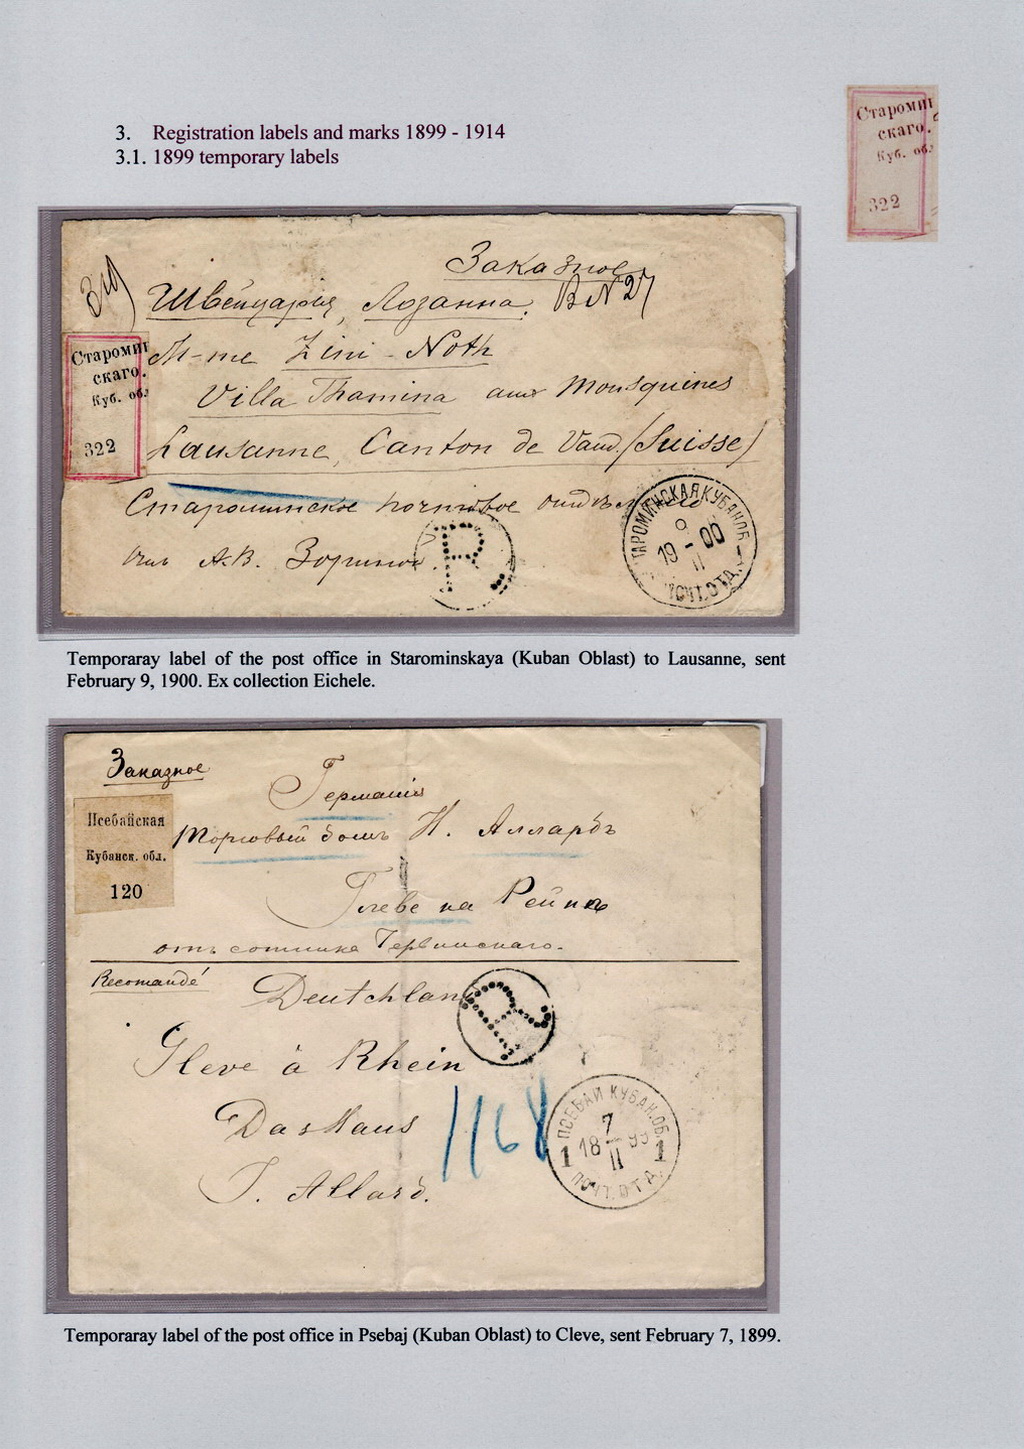 3. Registration labels and marks 1899 - 1914
3.1. 1899 temporary labels
Староминскаго.
Куб. об
322
Заказное
Швейцарія, Лозанна. В N 27
Староминскаго.
Куб. обл
322
M-me Zini - Noth
Villa Thamina aux Mousquines
Lausanne, Canton de Vaud (Suisse)
Староминское почтовое
А.В.
R
ТАРОМИНСКАЯ КУБАН.ОБ.
9
19-00
II
ПОЧТ.ОТД.
Temporaray label of the post office in Starominskaya (Kuban Oblast) to Lausanne, sent
February 9, 1900. Ex collection Eichele.
Заказное
Германія
Псебайская
Кубанск. обл.
120
Торговый домъ И. Аллардъ
Глеве на Рейнѣ
отъ сотника
Recomandé
Deutchland
R
Gleve à Rhein
Das Haus
1168
J. Allard.
ПСЕБАЙ КУБАН.ОБ.
7
18-99
II
1 1
ПОЧТ.ОТД.
Temporaray label of the post office in Psebaj (Kuban Oblast) to Cleve, sent February 7, 1899.